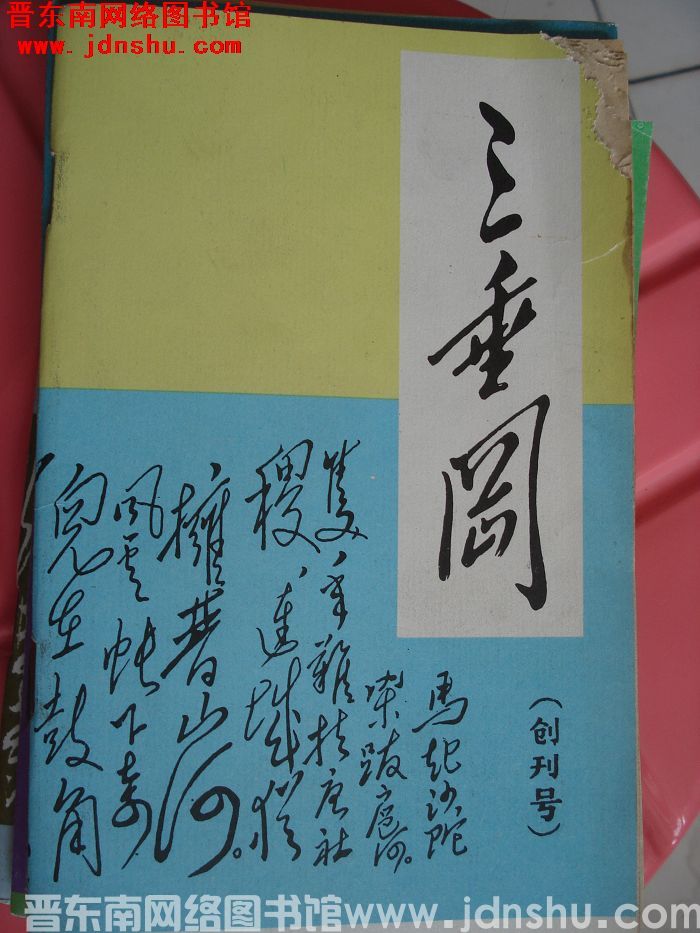 晋东南网络图书馆
www.jdnshu.com
三垂岡
（创刊号）
馬起沙陀
梁跋扈何。
隻手難扶唐社
稷，連城猶
擁晉山河。
风雲帐下奇
兒在鼓角
晋东南网络图书馆www.jdnshu.com